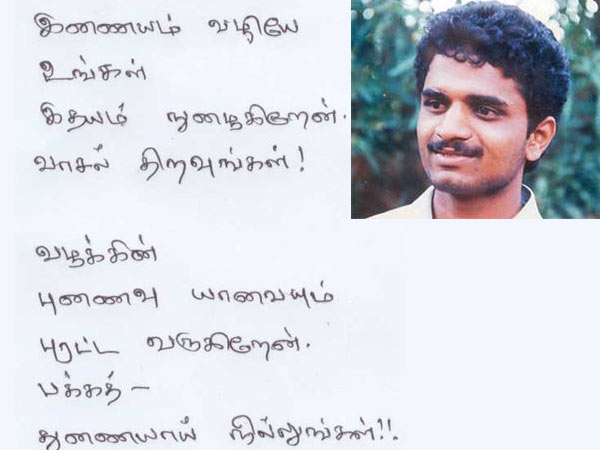 இணையம் வழியே
உங்கள்
இதயம் நுழைகிறேன்.
வாசல் திறவுங்கள்!
வழக்கின்
புனைவு யாவையும்
புரட்ட வருகிறேன்.
பக்கத் –
துணையாய் நில்லுங்கள்!!.